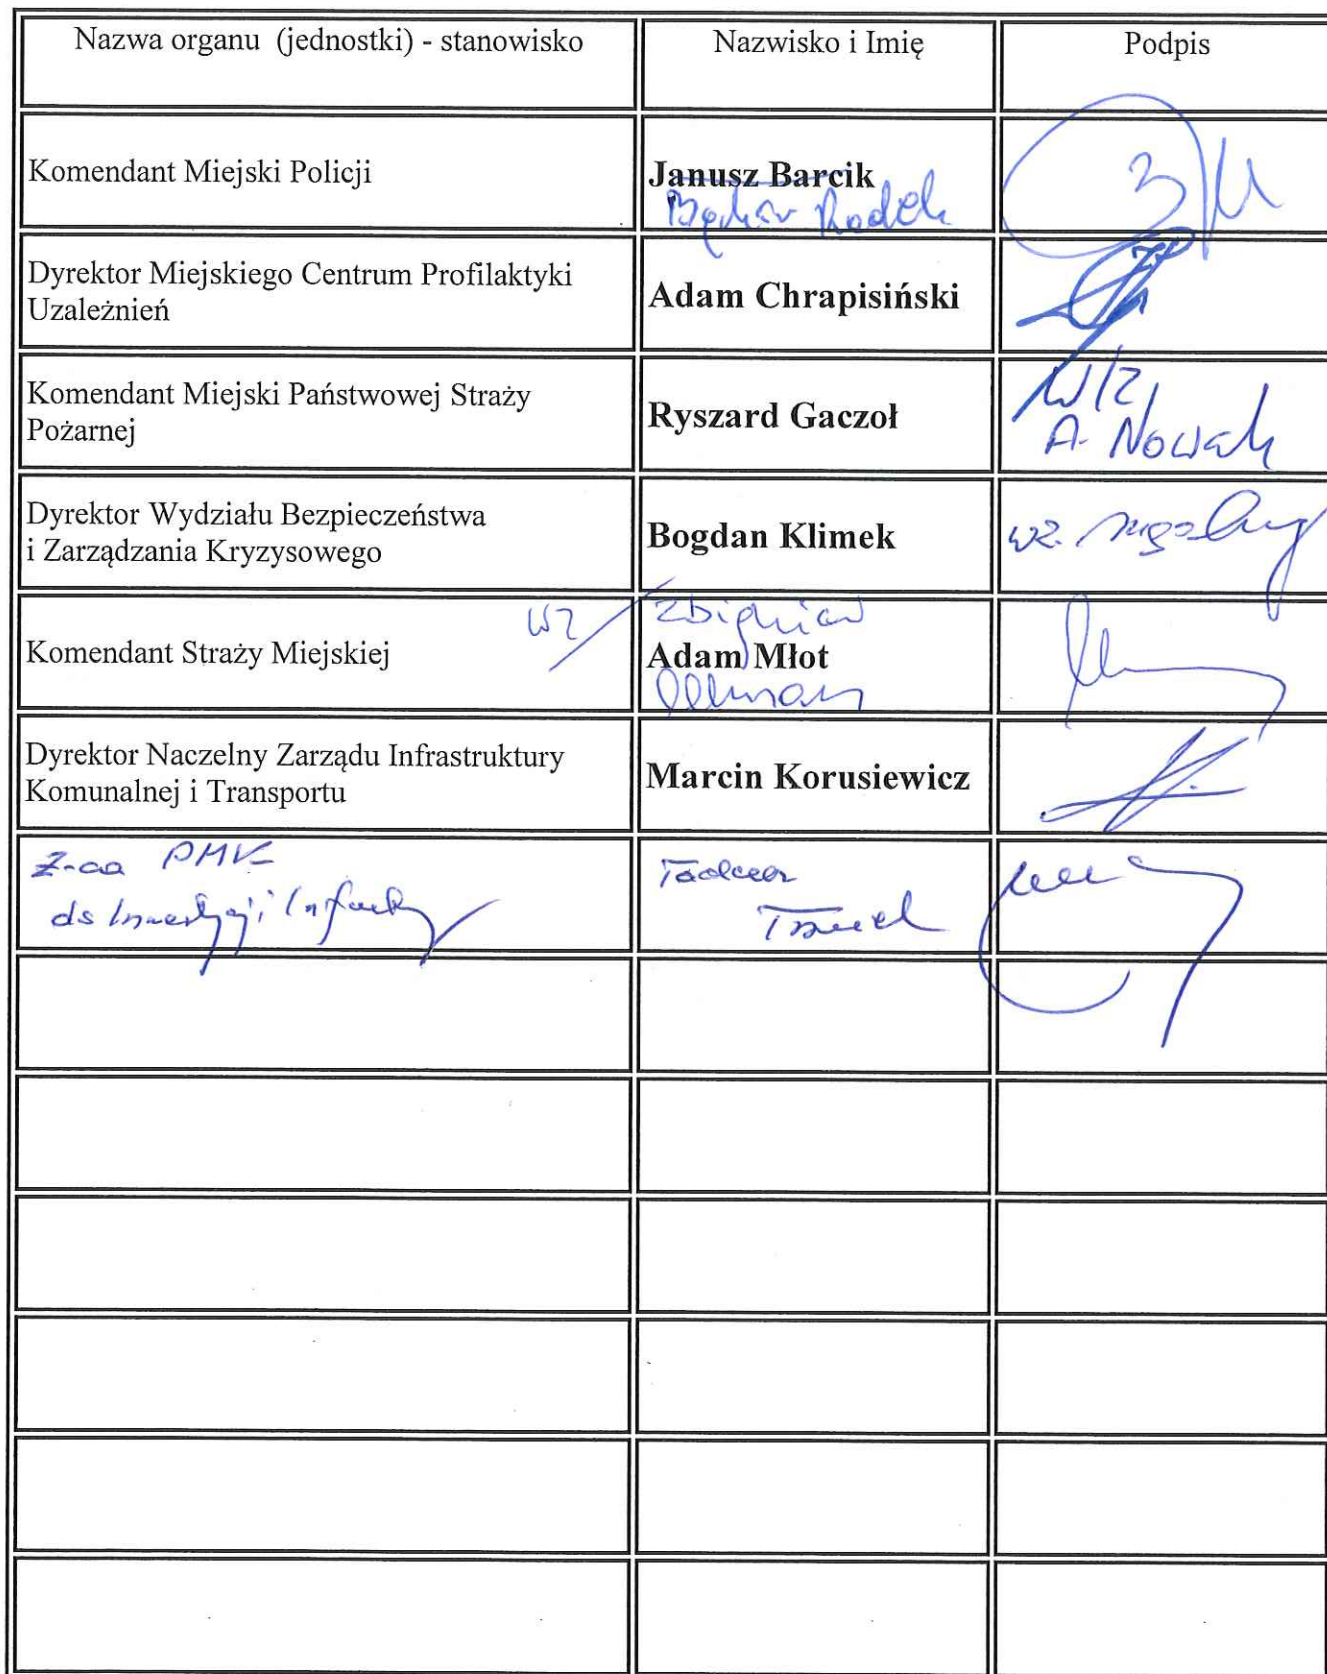 Nazwa organu (jednostki) - stanowisko
Nazwisko i Imię
Podpis
Komendant Miejski Policji
Janusz Barcik
Dyrektor Miejskiego Centrum Profilaktyki
Uzależnień
Adam Chrapisiński
Komendant Miejski Państwowej Straży
Pożarnej
Ryszard Gaczoł
W/Z
A. Nowak
Dyrektor Wydziału Bezpieczeństwa
i Zarządzania Kryzysowego
Bogdan Klimek
wz.
Komendant Straży Miejskiej
WZ
Zbigniew
Adam Młot
Dyrektor Naczelny Zarządu Infrastruktury
Komunalnej i Transportu
Marcin Korusiewicz
Z-ca PMK
ds
Tadeusz